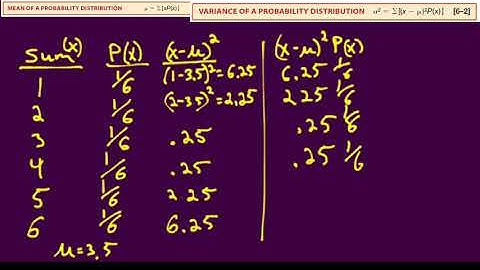 MEAN OF A PROBABILITY DISTRIBUTION μ = Σ[xP(x)]
VARIANCE OF A PROBABILITY DISTRIBUTION σ² = Σ[(x − μ)²P(x)] [6–2]
Sum (x) P(x) (x-μ)² (x-μ)² P(x)
1 1/6 (1-3.5)² = 6.25 6.25 1/6
2 1/6 (2-3.5)² = 2.25 2.25 1/6
3 1/6 .25 .25 1/6
4 1/6 .25 .25 1/6
5 1/6 2.25
6 1/6 6.25
μ = 3.5